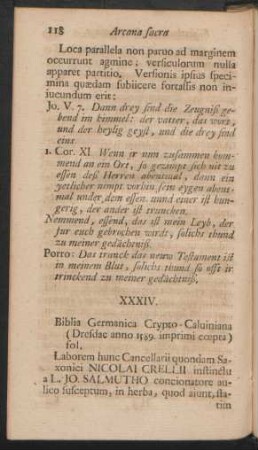 118 Arcana sacra
Loca parallela non paruo ad marginem
occurrunt agmine; versiculorum nulla
apparet partitio. Versionis ipsius speci-
mina quædam subiicere fortassis non in-
iucundum erit:
Jo. V. 7. Dann drey sind die Zeugniß ge-
bend im himmel: der vatter, das wort,
und der heylig geyst, und die drey sind
eins
1. Cor. XI Wenn ir nun zusammen kom-
mend an ein Ort, so gezimpt sich nit zu
essen deß Herren abentmal, dann ein
yetlicher nimpt vorhin sein eygen abent-
mal under dem essen. unnd einer ist hun-
gerig, der ander ist truncken.
Nemmend, essend, das ist mein Leyb, der
für euch gebrochen wirdt, solichs thund
zu meiner gedächtniß.
Porro: Das tranck das neuw Testament ist
in meinem Blut, solichs thund so offt ir
trinckend zu meiner gedächtniß.
XXXIV.
Biblia Germanica Crypto-Caluiniana
(Dresdae anno 1589. imprimi cœpta)
fol.
Laborem hunc Cancellarii quondam Sa-
xonici NICOLAI CRELLII instinctu
a L. JO. SALMUTHO concionatore au-
lico susceptum, in herba, quod aiunt, sta-
tim